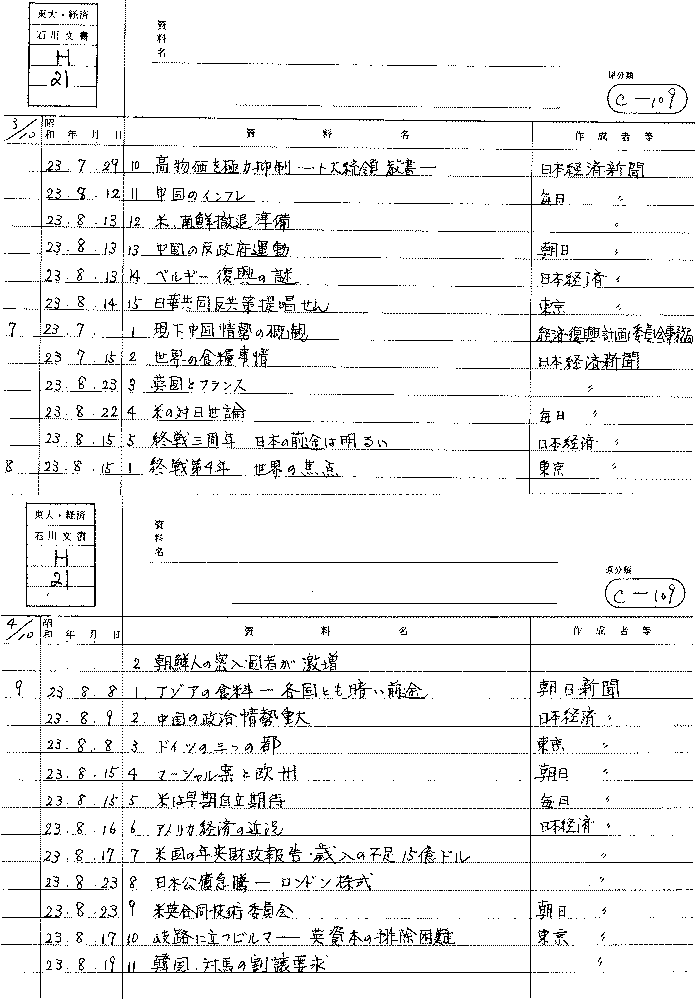 東大・経済
石川文書
H
21
資料名
原分類
C-109
3/10 昭和 年 月 日 資料名 作成者等
23. 7. 29 10 高物価を極力抑制 ―ト大統領教書― 日本経済新聞
23. 8. 12 11 中国のインフレ 毎日 〃
23. 8. 13 12 米、南鮮撤退準備 〃
23. 8. 13 13 中国の反政府運動 朝日 〃
23. 8. 13 14 ベルギー復興の謎 日本経済 〃
23. 8. 14 15 日華共同反共策提唱せん 東京 〃
7 23. 7. 1 現下中国情勢の概観 経済復興計画委員会事務局
23. 7. 15 2 世界の食糧事情 日本経済新聞
23. 8. 23 3 英国とフランス 〃
23. 8. 22 4 米の対日世論 毎日 〃
23. 8. 15 5 終戦三周年 日本の前途は明るい 日本経済 〃
8 23. 8. 15 1 終戦第4年 世界の焦点 東京 〃
東大・経済
石川文書
H
21
資料名
原分類
C-109
4/10 昭和 年 月 日 資料名 作成者等
2 朝鮮人の密入国者が激増
9 23. 8. 8 1 アジアの食料―各国とも暗い前途 朝日新聞
23. 8. 9 2 中国の政治情勢重大 日本経済 〃
23. 8. 8 3 ドイツの二つの都 東京 〃
23. 8. 15 4 マーシャル案と欧州 朝日 〃
23. 8. 15 5 米は早期自立期待 毎日 〃
23. 8. 16 6 アメリカ経済の近況 日本経済 〃
23. 8. 17 7 米国の年央財政報告・歳入の不足15億ドル 〃
23. 8. 23 8 日本公債急騰―ロンドン株式 〃
23. 8. 23 9 米英合同技術委員会 朝日 〃
23. 8. 17 10 岐路に立つビルマ――英資本の排除困難 東京 〃
23. 8. 19 11 韓国、対馬の割譲要求 〃